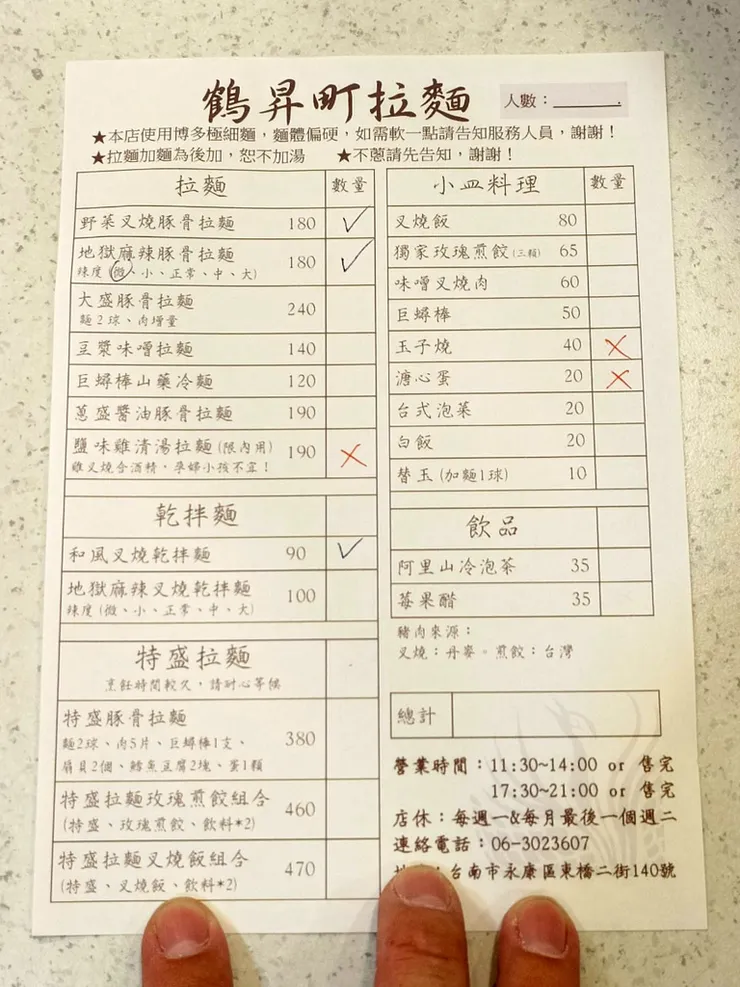 鶴昇町拉麵
人數：______.
★本店使用博多極細麵，麵體偏硬，如需軟一點請告知服務人員，謝謝！
★拉麵加麵為後加，恕不加湯 ★不蔥請先告知，謝謝！
拉麵 數量
野菜叉燒豚骨拉麵 180 ✓
地獄麻辣豚骨拉麵 180 ✓
辣度(微、小、正常、中、大)
大盛豚骨拉麵 240
麵2球、肉增量
豆漿味噌拉麵 140
巨蟳棒山藥冷麵 120
蔥盛醬油豚骨拉麵 190
鹽味雞清湯拉麵(限內用) 190 ✗
雞叉燒含酒精，孕婦小孩不宜！
乾拌麵
和風叉燒乾拌麵 90 ✓
地獄麻辣叉燒乾拌麵 100
辣度(微、小、正常、中、大)
特盛拉麵
烹飪時間較久，請耐心等候
特盛豚骨拉麵 380
麵2球、肉5片、巨蟳棒1支、
扇貝2個、鱈魚豆腐2塊、蛋1顆
特盛拉麵玫瑰煎餃組合 460
(特盛、玫瑰煎餃、飲料*2)
特盛拉麵叉燒飯組合 470
(特盛、叉燒飯、飲料*2)
小皿料理 數量
叉燒飯 80
獨家玫瑰煎餃(三顆) 65
味噌叉燒肉 60
巨蟳棒 50
玉子燒 40 ✗
溏心蛋 20 ✗
台式泡菜 20
白飯 20
替玉(加麵1球) 10
飲品
阿里山冷泡茶 35
莓果醋 35
豬肉來源：
叉燒：丹麥。煎餃：台灣
總計
營業時間：11:30~14:00 or 售完
17:30~21:00 or 售完
店休：每週一&每月最後一個週二
連絡電話：06-3023607
台南市永康區東橋二街140號